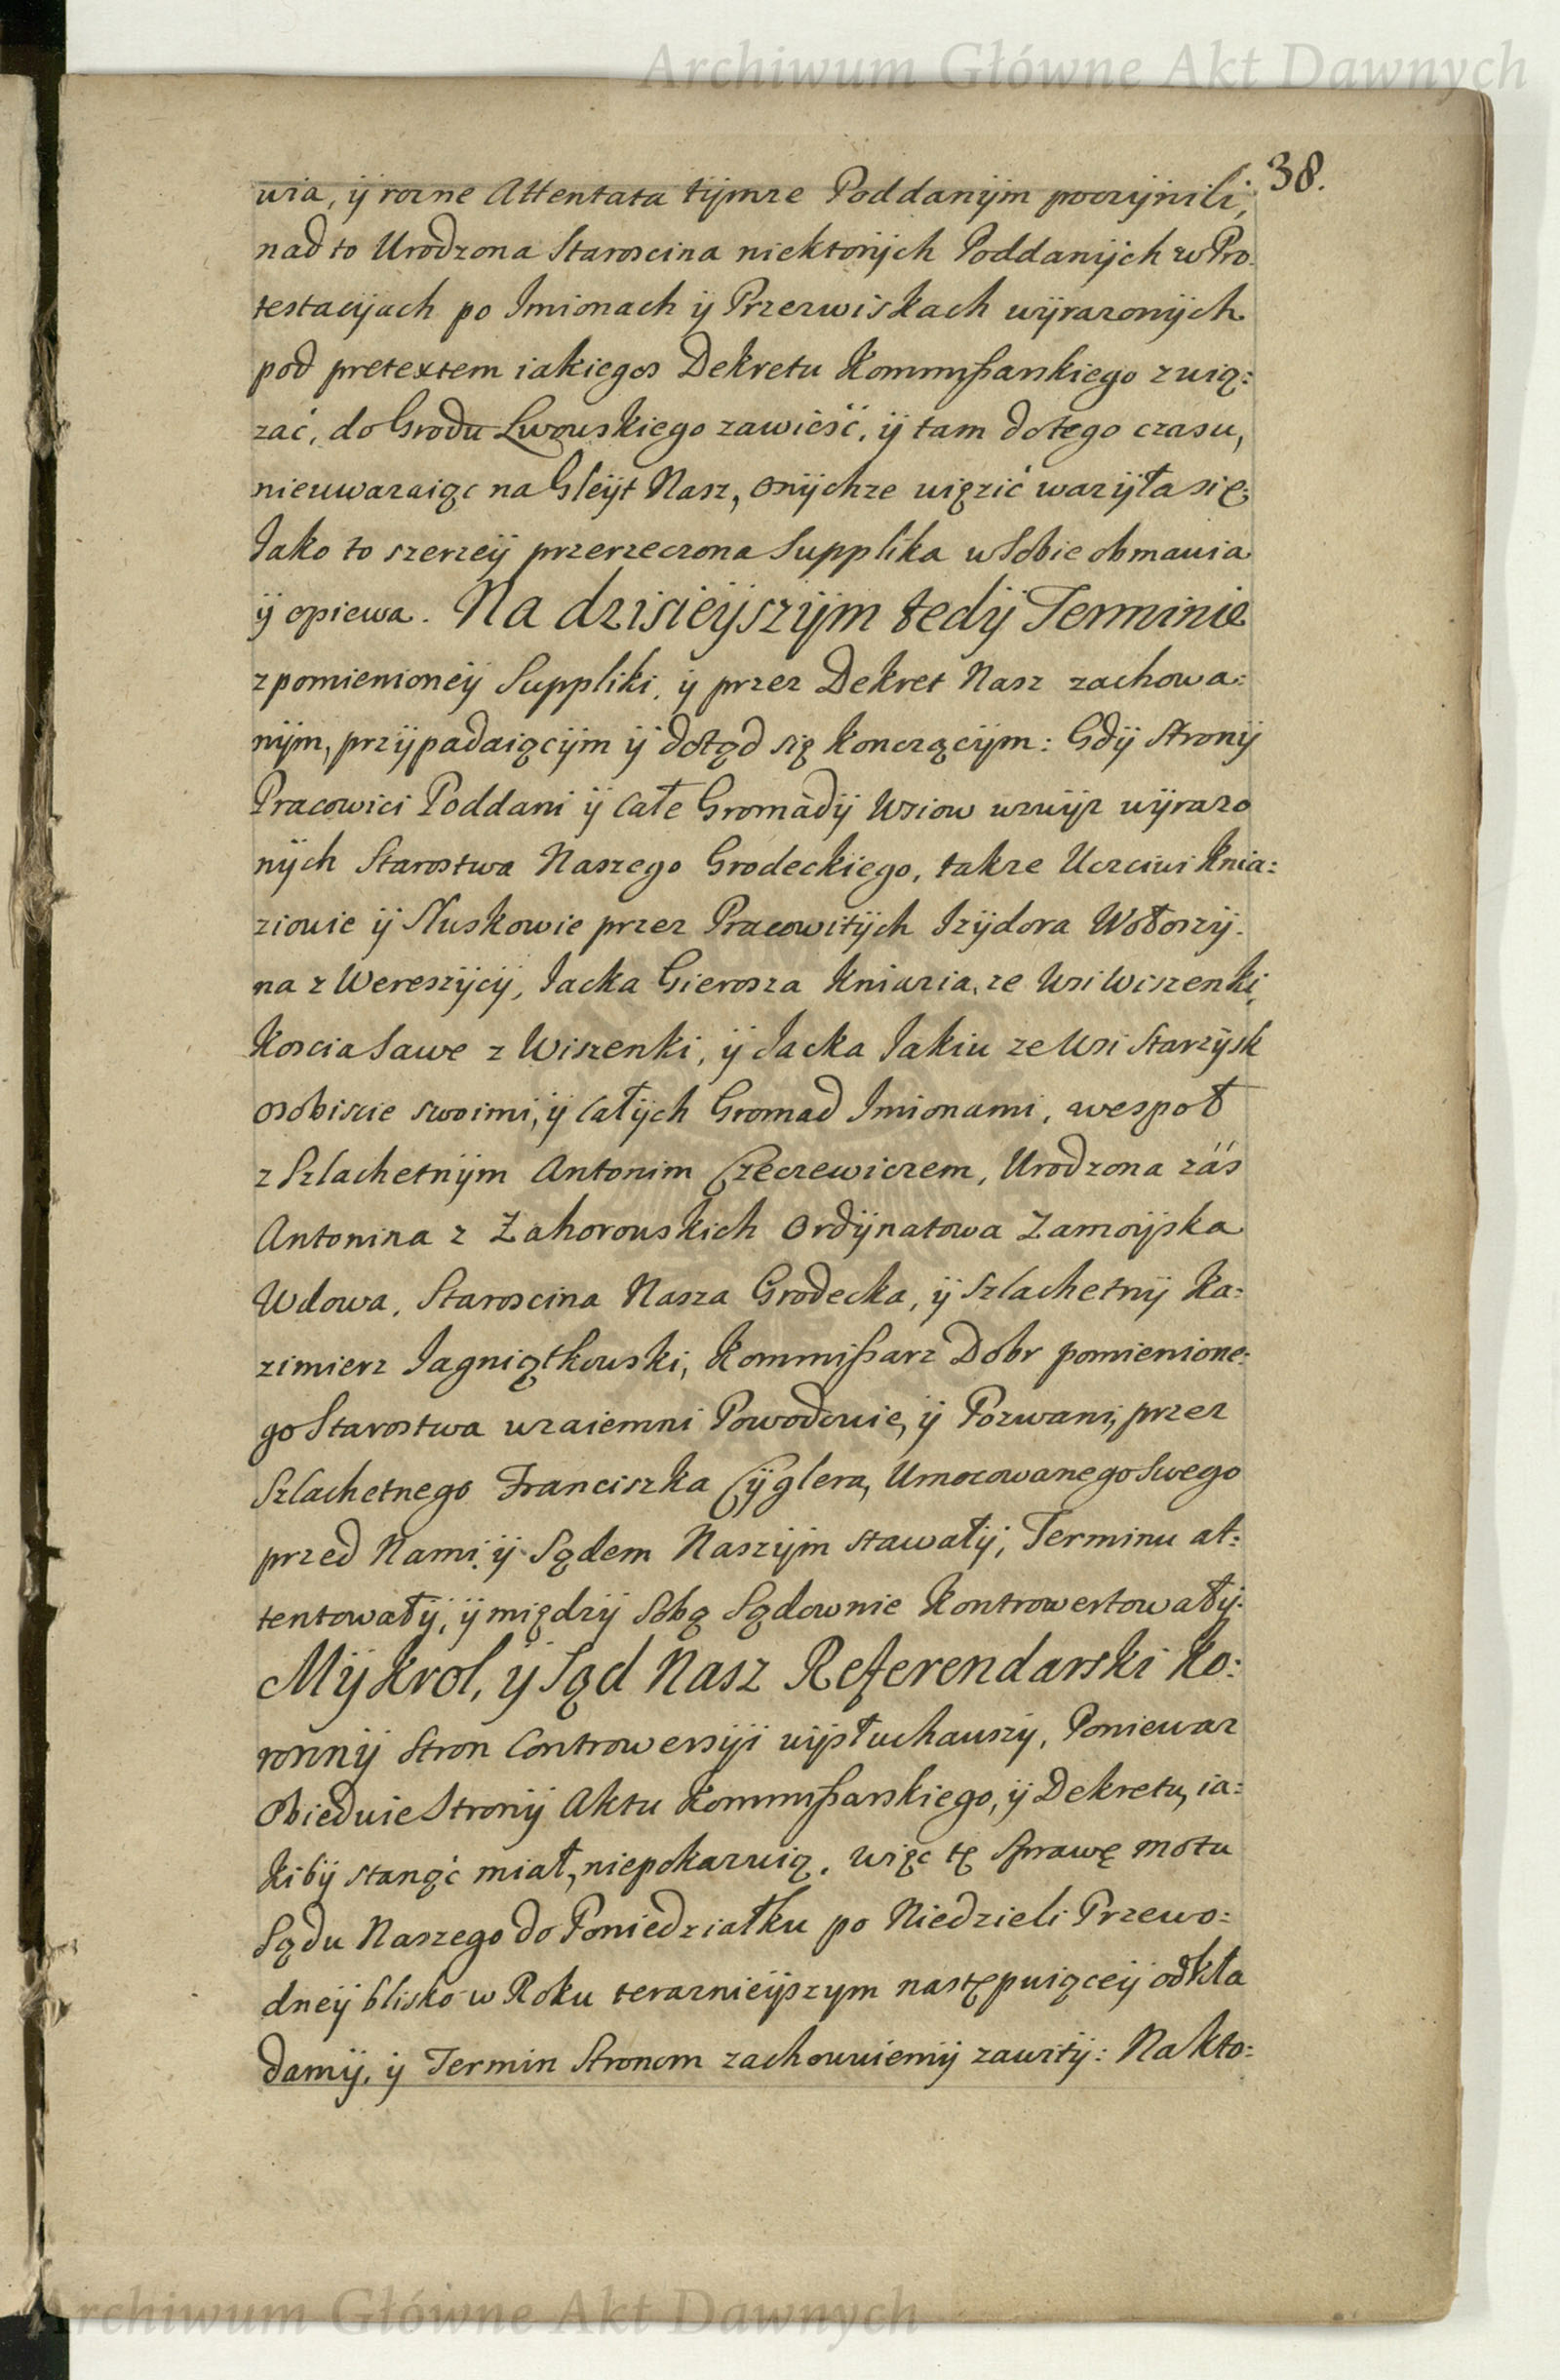 Archiwum Główne Akt Dawnych
38.
wia, ÿ rozne Attentata tÿmze Poddanÿm poczÿnili,
nad to Urodzona Staroscina niektorÿch Poddanÿch w Pro:
testacÿach po Imionach ÿ Przezwiskach wÿrazonÿch
pod pretextem iakiegos Dekretu Kommißarskiego zwią:
zać, do Grodu Lwowskiego zawieść, ÿ tam do tego czasu,
nieuwazaiąc na Gleÿt Nasz, onÿchze więzić wazÿła się;
Jako to szerzeÿ przerzeczona Supplika w Sobie obmawia
ÿ opiewa. Na dzisieÿszÿm tedÿ Terminie
z pomienioneÿ Suppliki, ÿ przez Dekret Nasz zachowa:
nÿm, przÿpadaiącÿm ÿ dotąd się konczącÿm: Gdÿ Stronÿ
Pracowici Poddani ÿ całe Gromadÿ Wsiow wzwÿz wÿrazo
nÿch Starostwa Naszego Grodeckiego, takze Uczciwi Knia:
ziowie ÿ Sługkowie przez Pracowitÿch Izÿdora Wołoszÿ:
na z Wereszÿcÿ, Jacka Gierosza Kniazia, ze Wsi Wiszenki,
Koscia Sawe z Wiszenki, ÿ Jacka Jakiu ze Wsi Starzÿsk
osobiscie swoimi, ÿ całÿch Gromad Imionami, wespoł
z Szlachetnÿm Antonim Czeczewiczem, Urodzona záś
Antonina z Zahorowskich Ordÿnatowa Zamoÿska
Wdowa, Staroscina Nasza Grodecka, ÿ Szlachetnÿ Ka:
zimierz Jagniątkowski, Kommißarz Dobr pomienione:
go Starostwa wzaiemni Powodowie, ÿ Pozwani, przez
Szlachetnego Franciszka Cÿglera, Umocowanego Swego
przed Nami, ÿ Sądem Naszÿm stawałÿ, Terminu at:
tentowałÿ, ÿ międzÿ Sobą Sądownie Kontrowertowałÿ:
Mÿ Krol, ÿ Sąd Nasz Referendarski Ko:
ronnÿ Stron Controwersÿi wÿsłuchawszÿ, Poniewaz
Obiedwie Stronÿ Aktu Kommißarskiego, ÿ Dekretu, ia:
kibÿ stanąć miał, niepokazuią, więc tę Sprawę motu
Sądu Naszego do Poniedziałku po Niedzieli Przewo:
dneÿ blisko w Roku teraznieÿszym następuiąceÿ odkła
damÿ, ÿ Termin Stronom zachowuiemÿ zawitÿ: Na kto:
Archiwum Główne Akt Dawnych